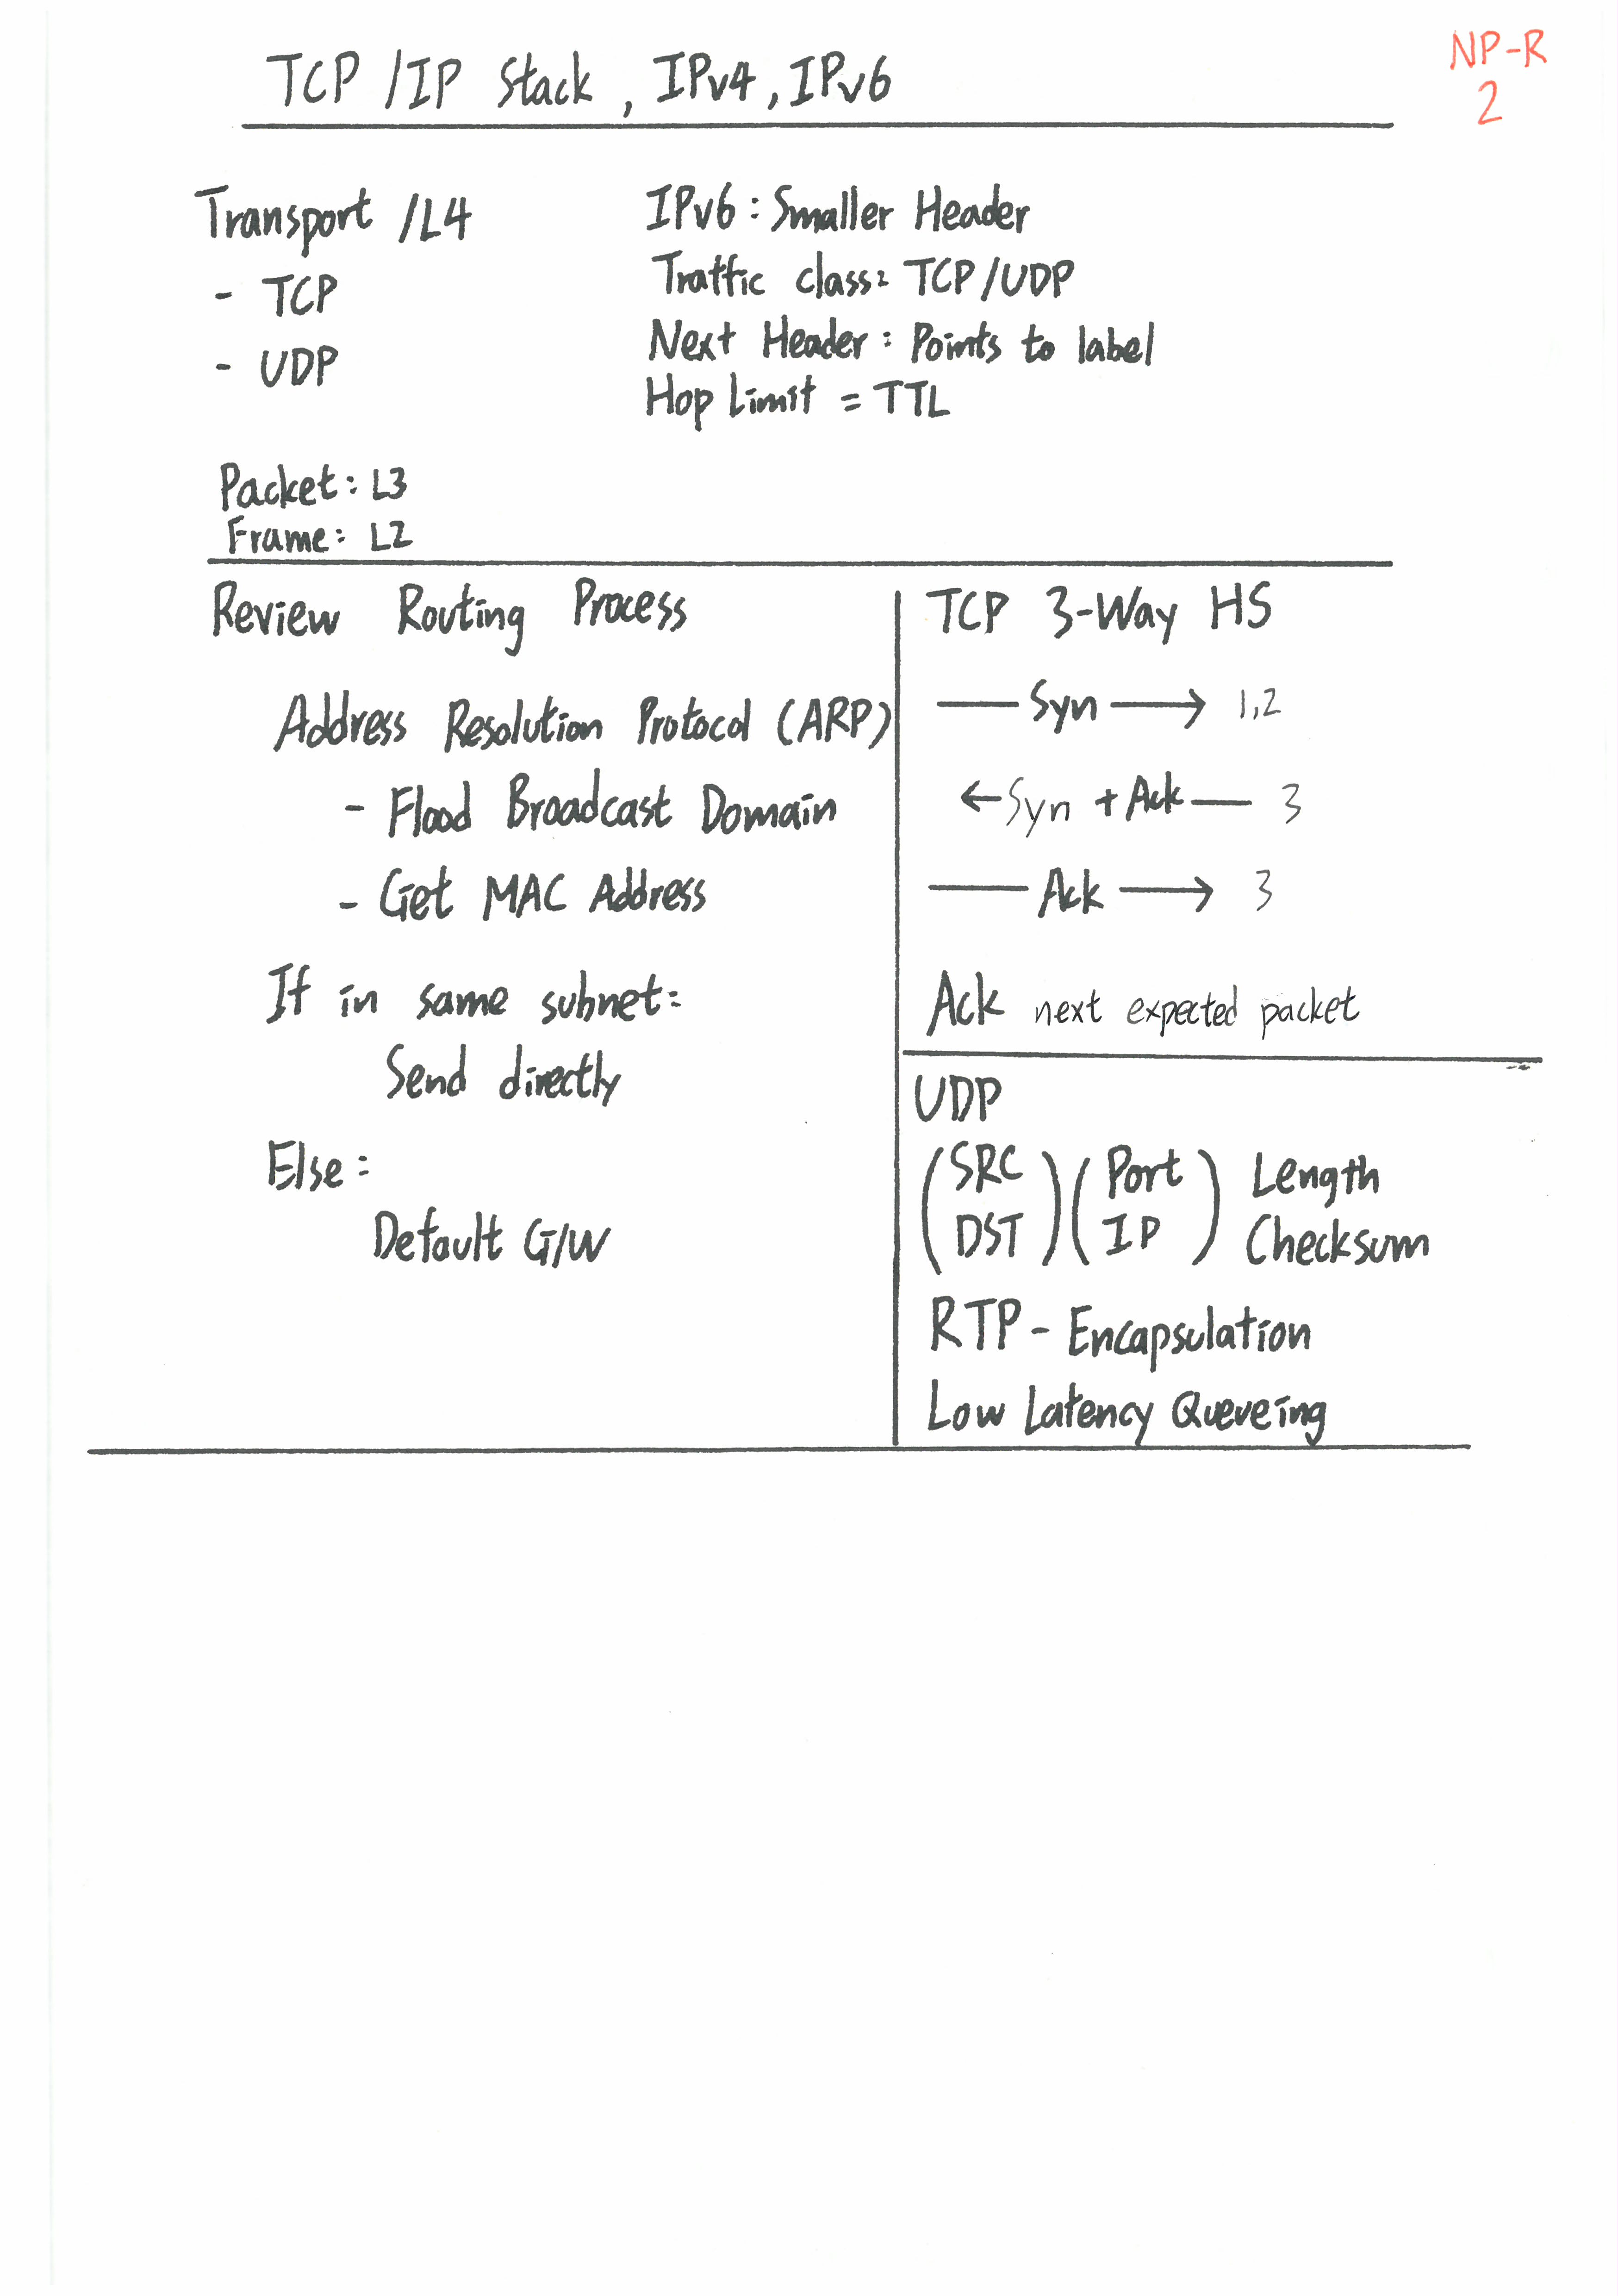 TCP /IP Stack, IPv4, IPv6
NP-R
2
Transport /L4
- TCP
- UDP
IPv6: Smaller Header
Traffic class: TCP/UDP
Next Header: Points to label
Hop Limit = TTL
Packet: L3
Frame: L2
Review Routing Process
Address Resolution Protocol (ARP)
- Flood Broadcast Domain
- Get MAC Address
If in same subnet:
Send directly
Else:
Default G/W
TCP 3-Way HS
— Syn → 1,2
← Syn + Ack — 3
— Ack → 3
Ack next expected packet
UDP
(SRC DST) (Port IP) Length
Checksum
RTP - Encapsulation
Low Latency Queueing